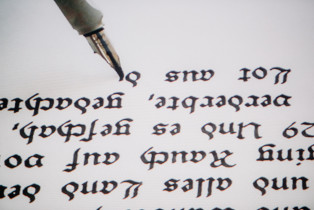 und alles Land de
ging Rauch auf vo
29 Und es geſchah,
verderbte, gedachte
Lot aus d